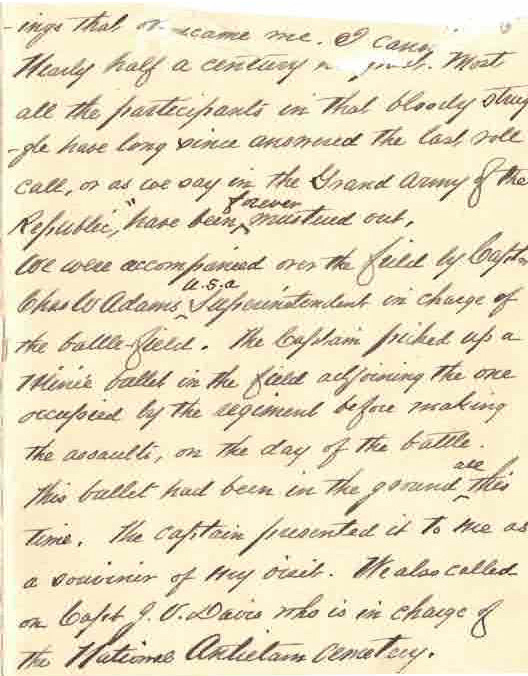 -ings that o  came me. I can
Nearly half a century  . Most
all the participants in that bloody strug
-gle have long since answered the last roll
call, or as we say in the Grand Army of the
Republic, "have been forever mustered out,
We were accompanied over the field by Captain
Chas W Adams U.S.A Superintendent in charge of
the battle-field. The Captain picked up a
Minie ballet in the field adjoining the one
occupied by the regiment before making
the assaults, on the day of the battle.
This ballet had been in the ground all this
time. The captain presented it to me as
a souvinir of my visit. We also called
on Capt J. V. Davis who is in charge of
the National Antietam Cemetery.